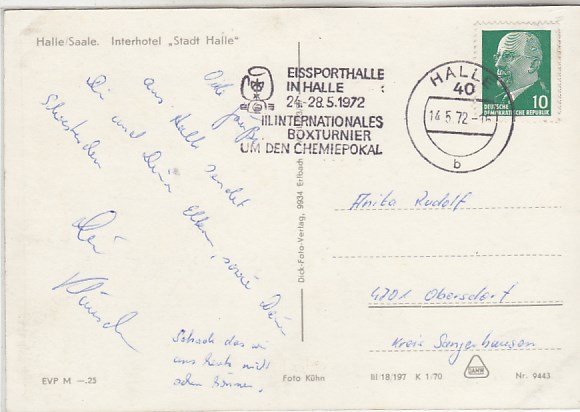 Halle/Saale. Interhotel „Stadt Halle“
EISSPORTHALLE
IN HALLE
24.-28.5.1972
III.INTERNATIONALES
BOXTURNIER
UM DEN CHEMIEPOKAL
HALLE
40
14.5.72
b
10
DEUTSCHE
DEMOKRATISCHE REPUBLIK
aus Halle sendet
Dir und Deinen Eltern, sowie Deinen
Dein
Schade das wir
uns heute nicht
sehen können.
Anita Rudolf
4701 Obersdorf
Kreis Sangerhausen
Dick-Foto-Verlag, 9934 Erlbach
EVP M —.25
Foto Kühn
III/18/197 K 1/70
Nr. 9443